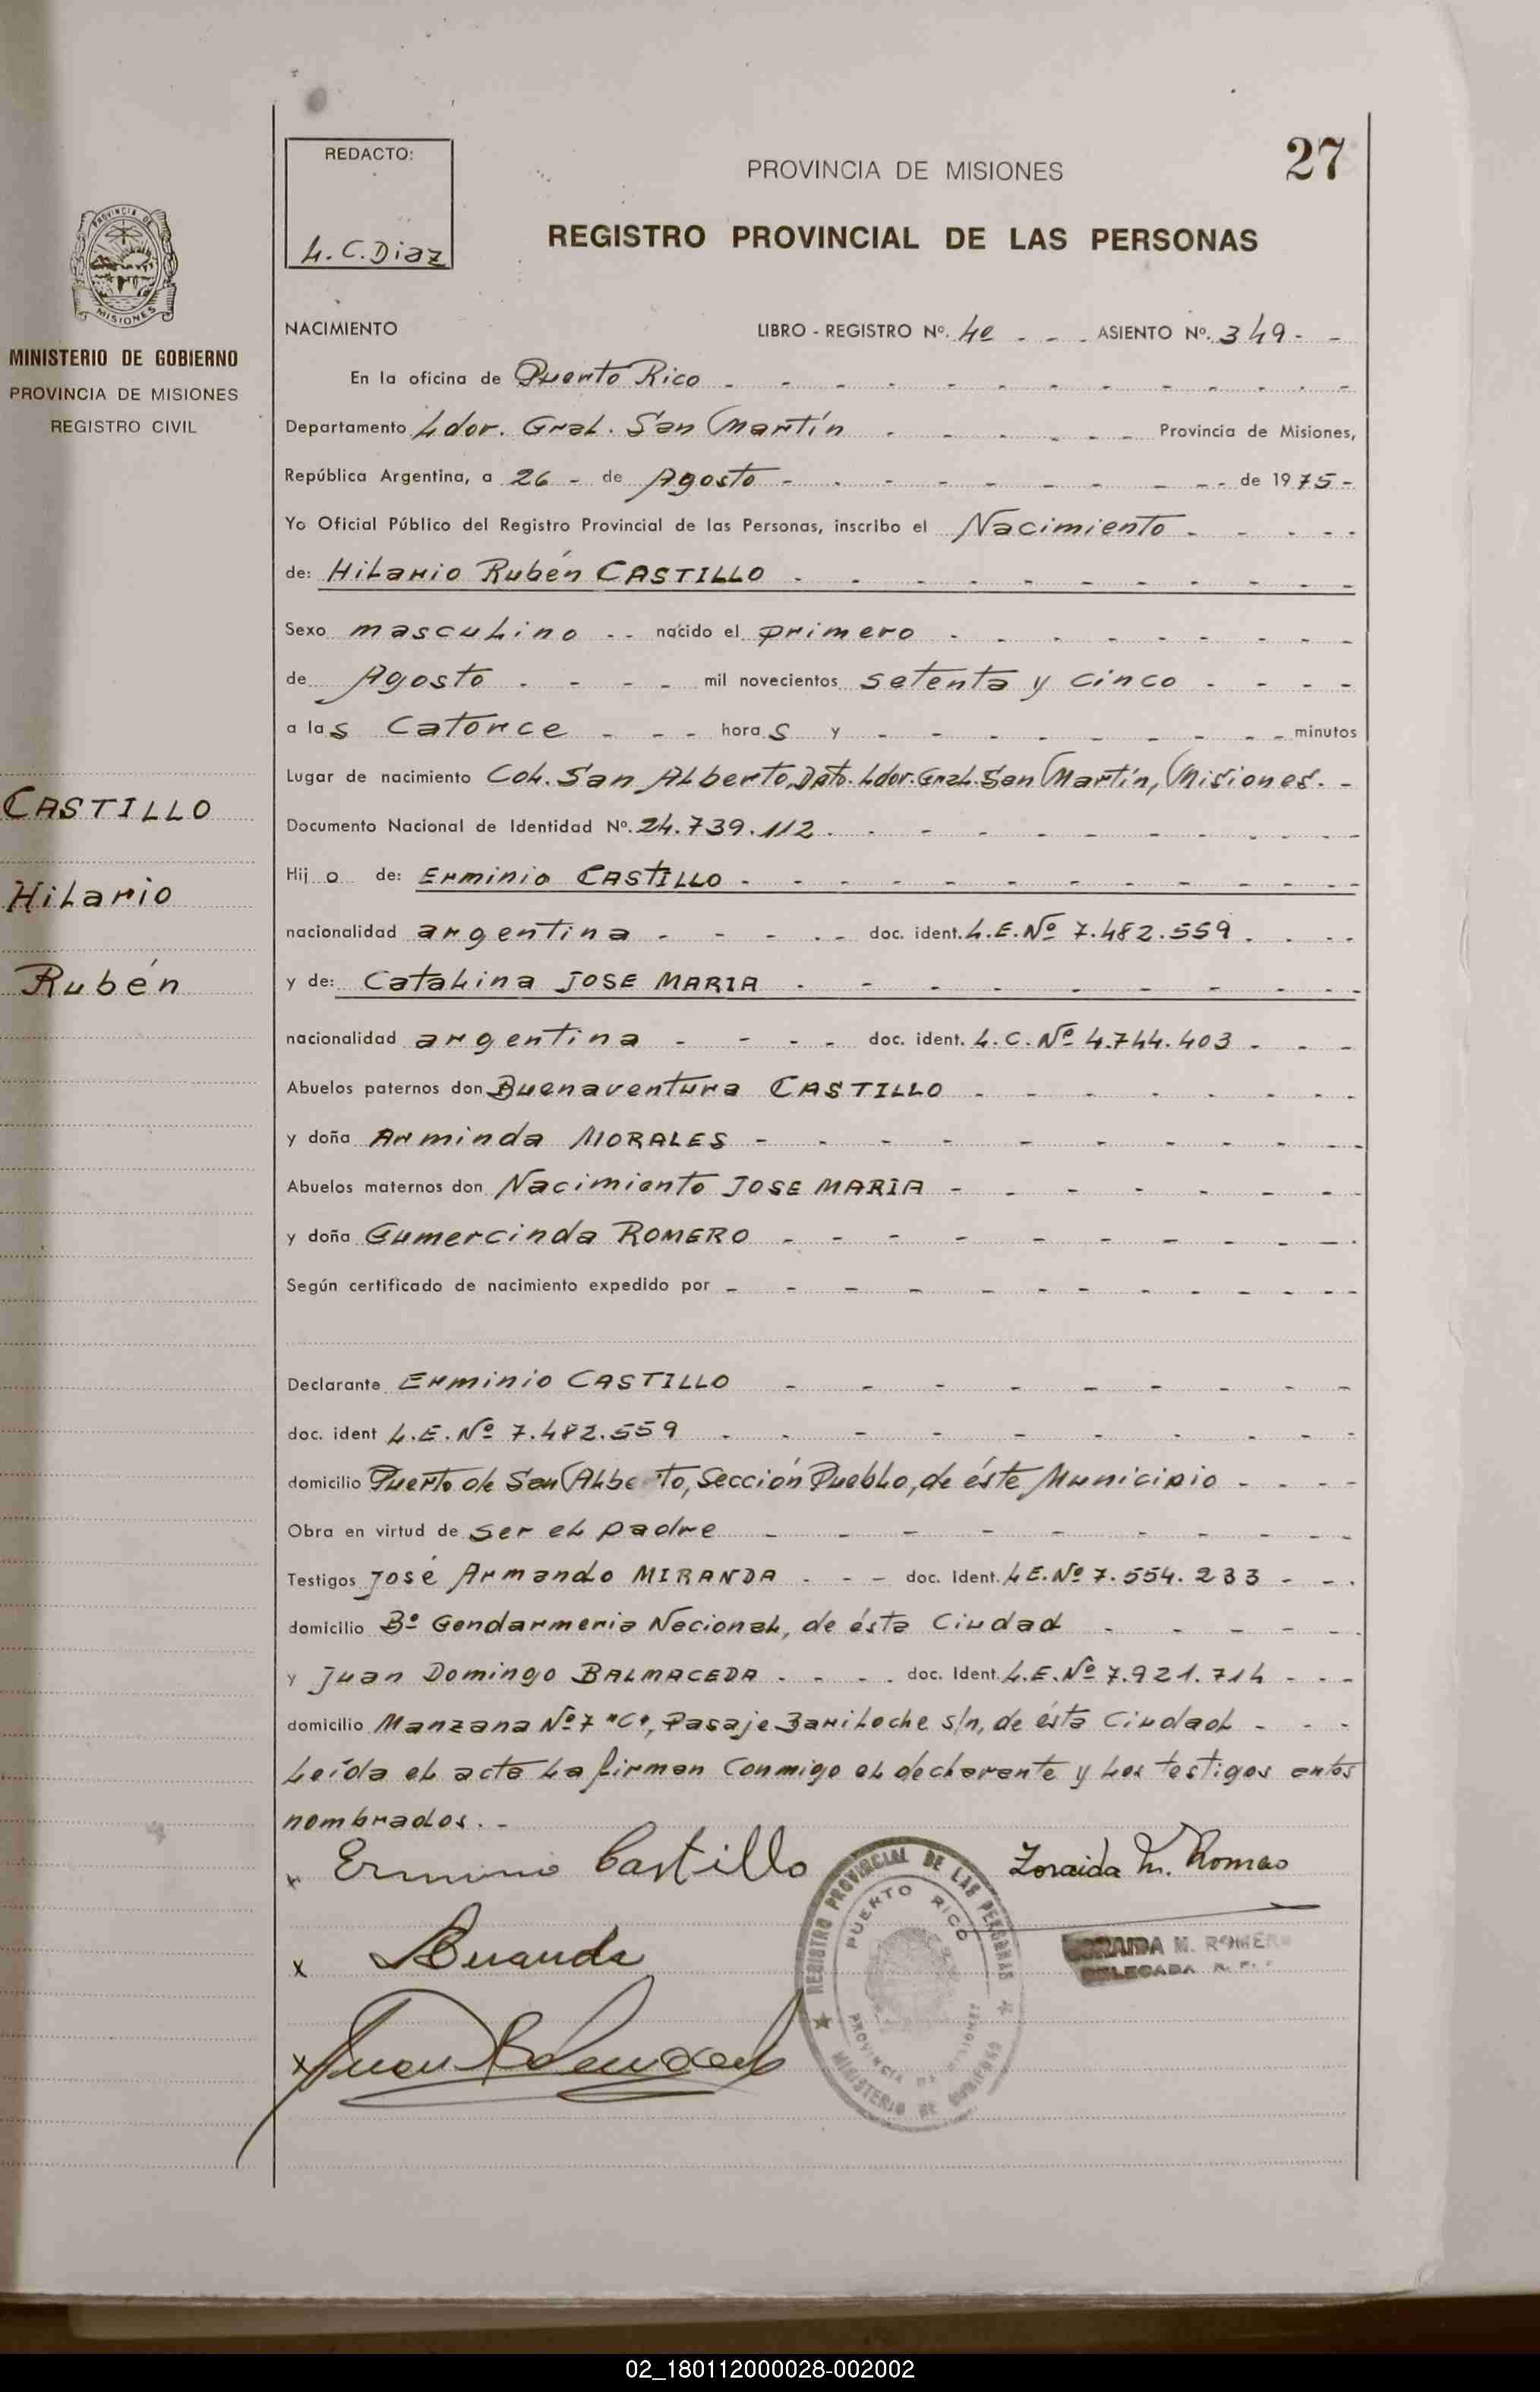 27
REDACTO:
L.C.Diaz
PROVINCIA DE MISIONES
REGISTRO PROVINCIAL DE LAS PERSONAS
PROVINCIA DE
MISIONES
MINISTERIO DE GOBIERNO
PROVINCIA DE MISIONES
REGISTRO CIVIL
CASTILLO
Hilario
Rubén
NACIMIENTO LIBRO - REGISTRO Nº. 4e - - - ASIENTO Nº. 349 - -
En la oficina de Puerto Rico - - - - - - - - - - - -
Departamento Ldor. Gral. San Martín - - - - - - Provincia de Misiones,
República Argentina, a 26 - de Agosto - - - - - - - - - - de 1975 -
Yo Oficial Público del Registro Provincial de las Personas, inscribo el Nacimiento - - - - -
de: Hilario Rubén CASTILLO - - - - - - - - - - -
Sexo masculino - - nacido el primero - - - - - - - - -
de Agosto - - - - mil novecientos setenta y cinco - - - -
a las Catorce - - - horas y - - - - - - - - - minutos
Lugar de nacimiento Col. San Alberto, Dpto. Ldor. Gral. San Martín, Misiones. -
Documento Nacional de Identidad Nº. 24.739.112. - - - - - - - - -
Hijo de: Erminio CASTILLO - - - - - - - - - - - -
nacionalidad argentina - - - - - doc. ident. L.E.Nº 7.482.559 - - - -
y de: Catalina JOSE MARIA - - - - - - - - -
nacionalidad argentina - - - - doc. ident. L.C. Nº 4.744.403 - - -
Abuelos paternos don Buenaventura CASTILLO - - - - - - - -
y doña Arminda MORALES - - - - - - - - - -
Abuelos maternos don Nacimiento JOSE MARIA - - - - - - -
y doña Gumercinda ROMERO - - - - - - - - - -
Según certificado de nacimiento expedido por - - - - - - - - - - - -
Declarante Erminio CASTILLO - - - - - - - - -
doc. ident L.E. Nº 7.482.559 - - - - - - - - - -
domicilio Puerto de San Albe to, Sección Pueblo, de éste Municipio - - - -
Obra en virtud de ser el padre - - - - - - - - - -
Testigos José Armando MIRANDA - - - doc. Ident. L.E.Nº 7.554.233 - - -
domicilio Bº Gendarmeria Nacional, de ésta Ciudad - - - - - -
y Juan Domingo BALMACEDA - - - - doc. Ident. L.E.Nº 7.921.714 - - -
domicilio Manzana Nº 7 "C", Pasaje Bariloche s/n, de ésta Ciudad - - -
Leída el acta la firman conmigo el declarante y los testigos antes
nombrados. -
x Erminio Castillo
Zoraida M. Romero
x Miranda
ZORAIDA M. ROMERO
DELEGADA R. P.
x Juan Balmaceda
REGISTRO PROVINCIAL DE LAS PERSONAS
PUERTO RICO
PROVINCIA DE MISIONES
MINISTERIO DE GOBIERNO
02_180112000028-002002